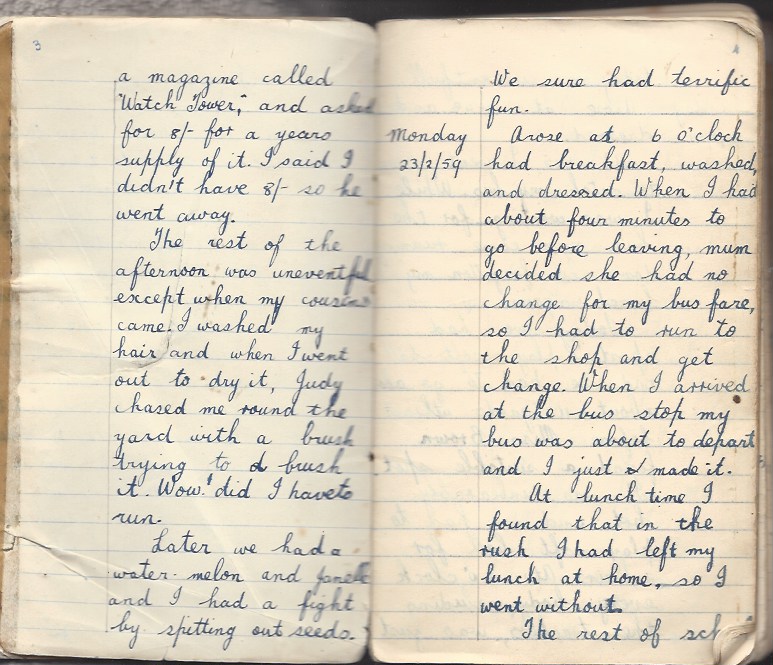 3
a magazine called
"Watch Tower," and asked
for 8/- for a years
supply of it. I said I
didn't have 8/- so he
went away.
The rest of the
afternoon was uneventful
except when my cousins
came. I washed my
hair and when I went
out to dry it, Judy
chased me round the
yard with a brush
trying to brush
it. Wow! did I have to
run.
Later we had a
water-melon and Janelle
and I had a fight
by spitting out seeds.
4
We sure had terrific
fun.
Monday
23/2/59
Arose at 6 o'clock
had breakfast, washed,
and dressed. When I had
about four minutes to
go before leaving, mum
decided she had no
change for my bus fare,
so I had to run to
the shop and get
change. When I arrived
at the bus stop my
bus was about to depart
and I just made it.
At lunch time I
found that in the
rush I had left my
lunch at home, so I
went without.
The rest of